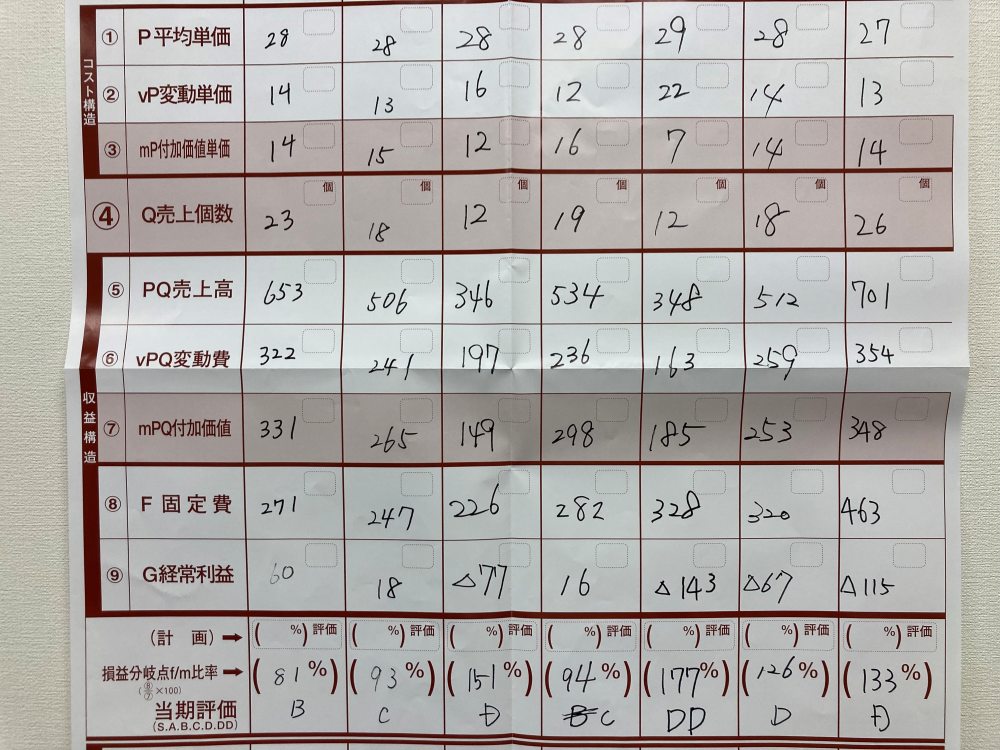 コスト構造
① P平均単価 28 28 28 28 29 28 27
② vP変動単価 14 13 16 12 22 14 13
③ mP付加価値単価 14 15 12 16 7 14 14
個 個 個 個 個 個 個
④ Q売上個数 23 18 12 19 12 18 26
収益構造
⑤ PQ売上高 653 506 346 534 348 512 701
⑥ vPQ変動費 322 241 197 236 163 259 354
⑦ mPQ付加価値 331 265 149 298 185 253 348
⑧ F固定費 271 247 226 282 328 320 463
⑨ G経常利益 60 18 △77 16 △143 △67 △115
(計画)➡ ( %)評価 ( %)評価 ( %)評価 ( %)評価 ( %)評価 ( %)評価 ( %)評価
損益分岐点f/m比率➡ (81%) (93%) (151%) (94%) (177%) (126%) (133%)
当期評価 B C D C DD D D
(S.A.B.C.D.DD)